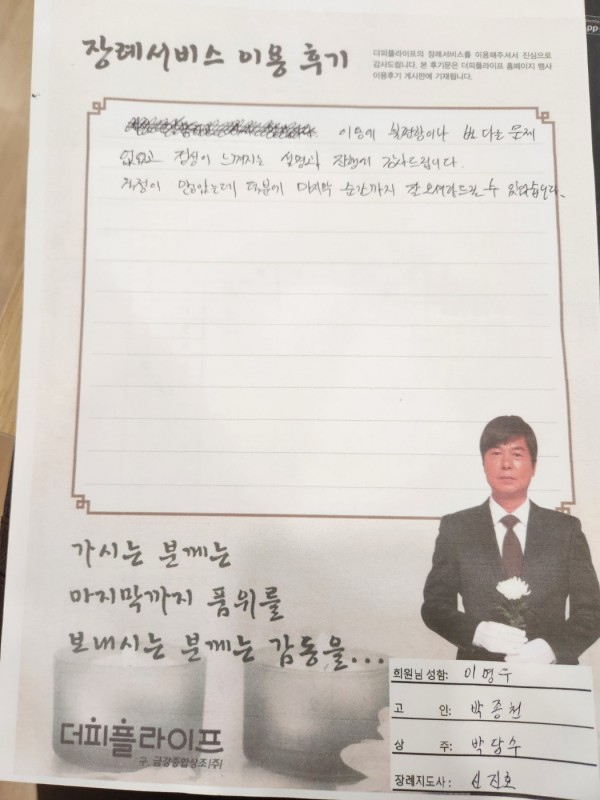 장례서비스 이용 후기
더피플라이프의 장례서비스를 이용해주셔서 진심으로
감사드립니다. 본 후기문은 더피플라이프 홈페이지 행사
이용후기 게시판에 기재됩니다.
이용에 불편함이나 별 다른 문제
없었고 정성이 느껴지는 진행에 감사드립니다.
걱정이 많았는데 덕분에 마지막 순간까지 잘 모셔다드릴 수 있었습니다.
가시는 분께는
마지막까지 품위를
보내시는 분께는 감동을...
더피플라이프
구. 금강종합상조(주)
회원님 성함: 이명수
고 인: 박종천
상 주: 박당수
장례지도사: 신진호